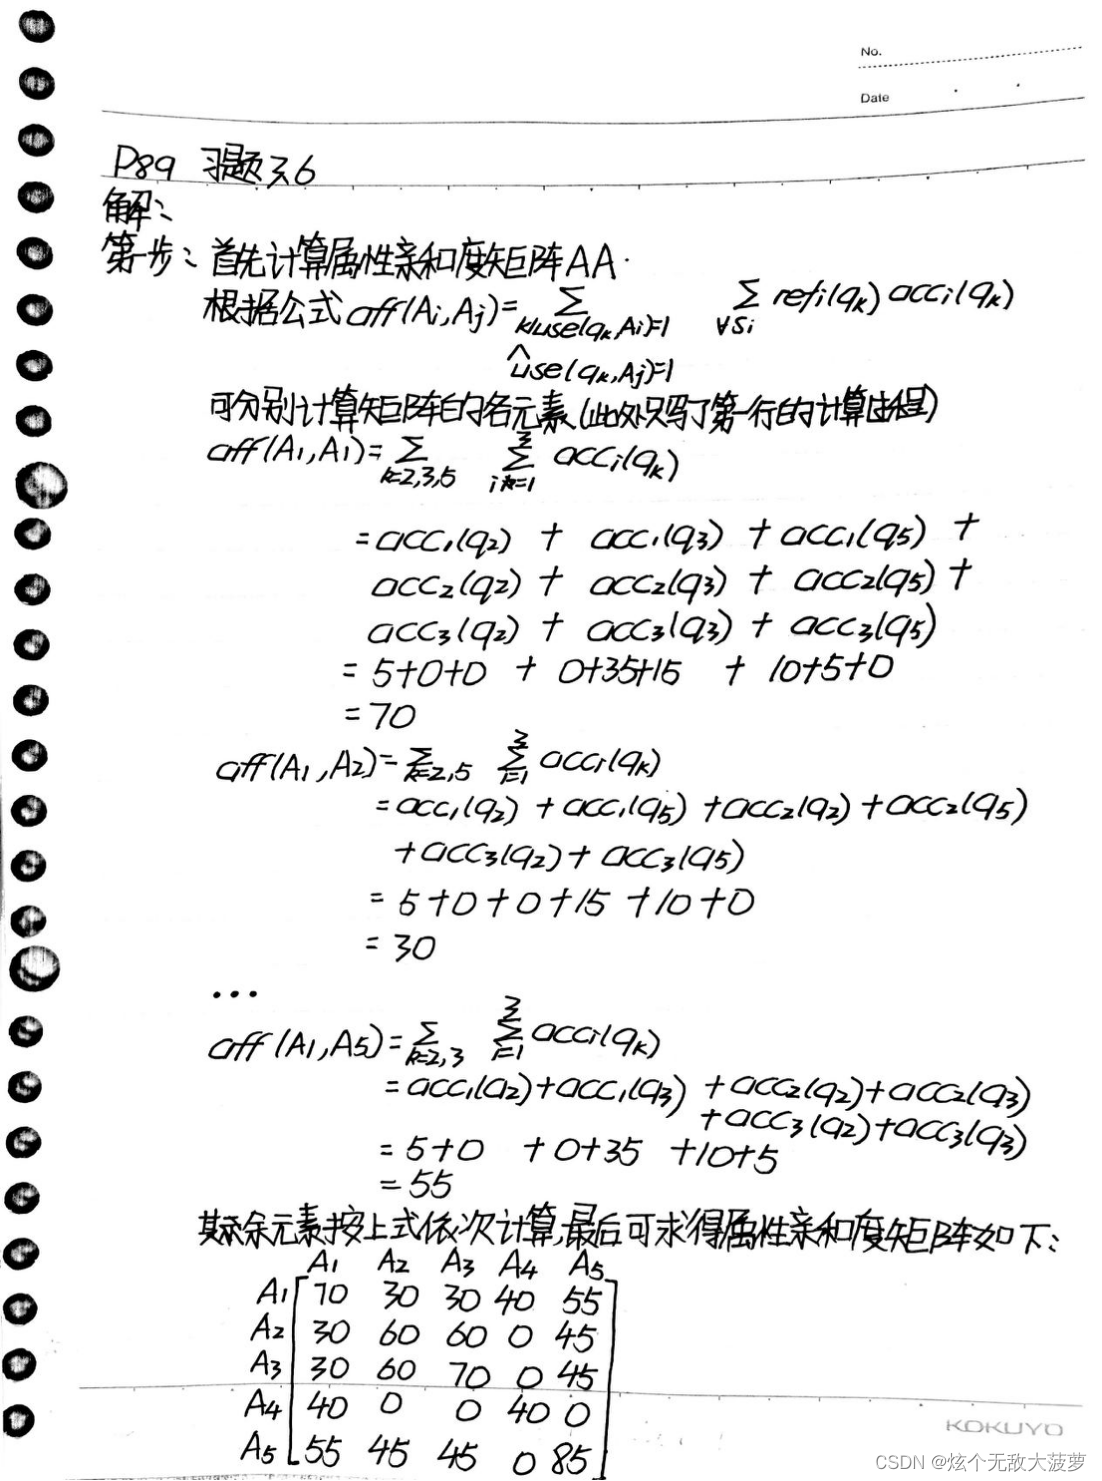 No.
Date
P89 习题3.6
解:
第一步: 首先计算属性亲和度矩阵AA.
根据公式 aff(Ai,Aj)=∑ ∑ refi(qk) acci(qk)
k|use(qk,Ai)=1 ∀Si
∧use(qk,Aj)=1
可分别计算矩阵的各元素(此处只写了第一行的计算过程)
aff(A1,A1)=∑k=2,3,5 ∑i=1 3 acci(qk)
=acc1(q2) + acc1(q3) + acc1(q5) +
acc2(q2) + acc2(q3) + acc2(q5) +
acc3(q2) + acc3(q3) + acc3(q5)
= 5+0+0 + 0+35+15 + 10+5+0
= 70
aff(A1,A2)=∑k=2,5 ∑i=1 3 acci(qk)
=acc1(q2) + acc1(q5) + acc2(q2) + acc2(q5)
+acc3(q2) + acc3(q5)
= 5+0+0+15+10+0
= 30
...
aff(A1,A5)=∑k=2,3 ∑i=1 3 acci(qk)
=acc1(q2)+acc1(q3) +acc2(q2)+acc2(q3)
+acc3(q2)+acc3(q3)
= 5+0 +0+35 +10+5
= 55
其余元素按上式依次计算,最后可求得属性亲和度矩阵如下:
A1 A2 A3 A4 A5
A1 70 30 30 40 55
A2 30 60 60 0 45
A3 30 60 70 0 45
A4 40 0 0 40 0
A5 55 45 45 0 85
KOKUYO
CSDN @炫个无敌大菠萝